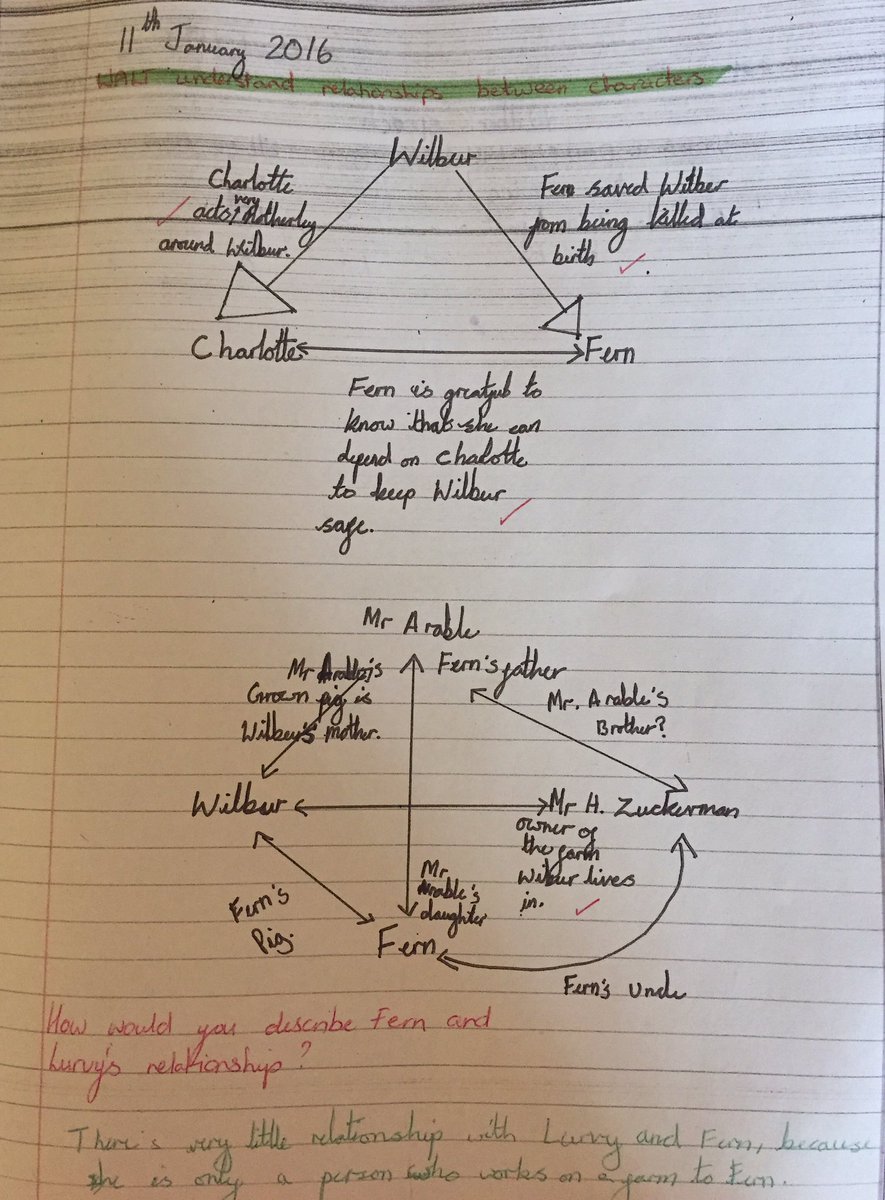 11th January 2016
WALT understand relationships between characters
Wilbur
Charlotte
acts very Motherley
around Wilbur.
Fern saved Wilber
from being killed at
birth
Charlotte
Fern
Fern is greatful to
know that she can
depend on Charlotte
to keep Wilbur
safe.
Mr Arable
Fern's father
Mr Arable's
Grown pig is
Wilbur's mother.
Mr. Arable's
Brother?
Wilbur
Mr H. Zuckerman
owner of
the farm
Wilbur lives
in.
Mr
Arable's
daughter
Fern's
Pig.
Fern
Fern's Uncle
How would you describe Fern and
Lurvy's relationship?
There's very little relationship with Lurvy and Fern, because
he is only a person who works on a farm to Fern.